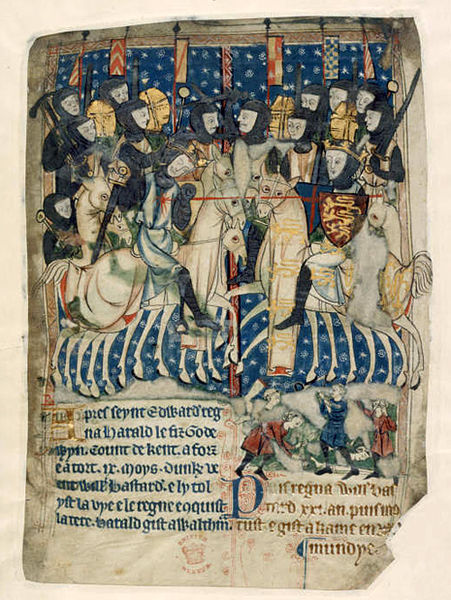 pres seynt Edward reg
na Harald le fiz Gode
wyn. Count de kent. a forz
e a tort. ix. moys. dunk ve
ent Will Bastard. e ly tol
yst la vye e le regne
la tere. harald gist a Waltham
Puis regna Will bas
tard. xxi. an. puis mo
rust. e gist a kame en
mundye.